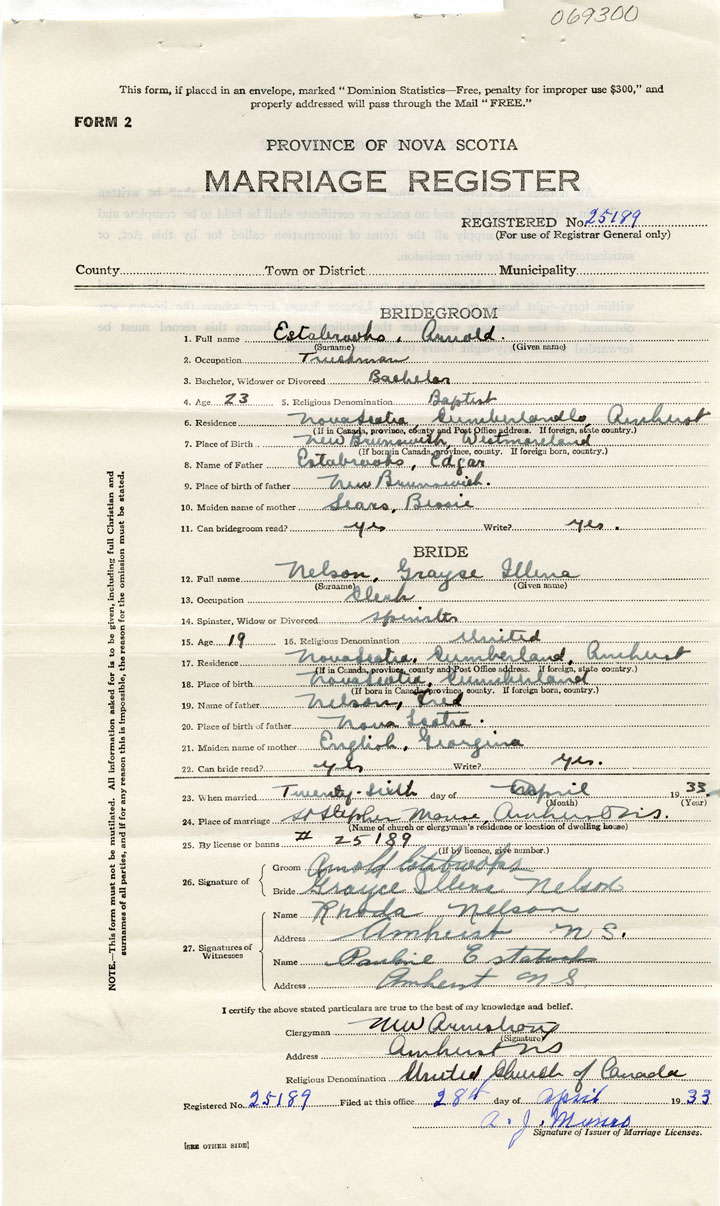 069300
This form, if placed in an envelope, marked "Dominion Statistics—Free, penalty for improper use $300," and
properly addressed will pass through the Mail "FREE."
FORM 2
PROVINCE OF NOVA SCOTIA
MARRIAGE REGISTER
REGISTERED No. 25189
(For use of Registrar General only)
County Town or District Municipality
BRIDEGROOM
1. Full name Estabrooks, Arnold.
(Surname) (Given name)
2. Occupation Truckman
3. Bachelor, Widower or Divorced Bachelor
4. Age 23 5. Religious Denomination Baptist
6. Residence Nova Scotia, Cumberland Co, Amherst
(If in Canada, province, county and Post Office address. If foreign, state country.)
7. Place of Birth New Brunswick, Westmoreland
(If born in Canada, province, county. If foreign born, country.)
8. Name of Father Estabrooks, Edgar
9. Place of birth of father New Brunswick.
10. Maiden name of mother Sears, Bessie
11. Can bridegroom read? yes Write? yes.
BRIDE
12. Full name Nelson, Grayce Illena
(Surname) (Given name)
13. Occupation Clerk
14. Spinster, Widow or Divorced Spinster
15. Age 19 16. Religious Denomination United
17. Residence Nova Scotia, Cumberland, Amherst
(If in Canada, province, county and Post Office address. If foreign, state country.)
18. Place of birth Nova Scotia, Cumberland
(If born in Canada, province, county. If foreign born, country.)
19. Name of father Nelson, Fred
20. Place of birth of father Nova Scotia.
21. Maiden name of mother English, Georgina
22. Can bride read? yes Write? yes.
23. When married Twenty-Sixth day of April 1933
(Month) (Year)
24. Place of marriage St Stephen Manse, Amherst N.S.
(Name of church or clergyman's residence or location of dwelling house)
25. By license or banns # 25189
(If by licence, give number.)
26. Signature of
Groom Arnold Estabrooks
Bride Grayce Illena Nelson
27. Signatures of Witnesses
Name Rhoda Nelson
Address Amherst N.S.
Name Estabrooks
Address Amherst N.S.
I certify the above stated particulars are true to the best of my knowledge and belief.
Clergyman M W Armstrong
(Signature)
Address Amherst NS
Religious Denomination United Church of Canada
Registered No. 25189 Filed at this office 28th day of april 1933
A. J. Munro
Signature of Issuer of Marriage Licenses.
[SEE OTHER SIDE]
NOTE.—This form must not be mutilated. All information asked for is to be given, including full Christian and
surnames of all parties, and if for any reason this is impossible, the reason for the omission must be stated.